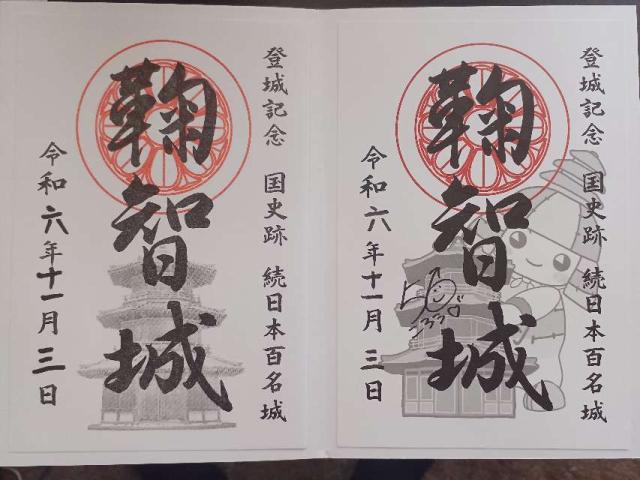 登城記念 国史跡 続日本百名城
鞠智城
令和六年十一月三日
登城記念 国史跡 続日本百名城
鞠智城
ころう
令和六年十一月三日